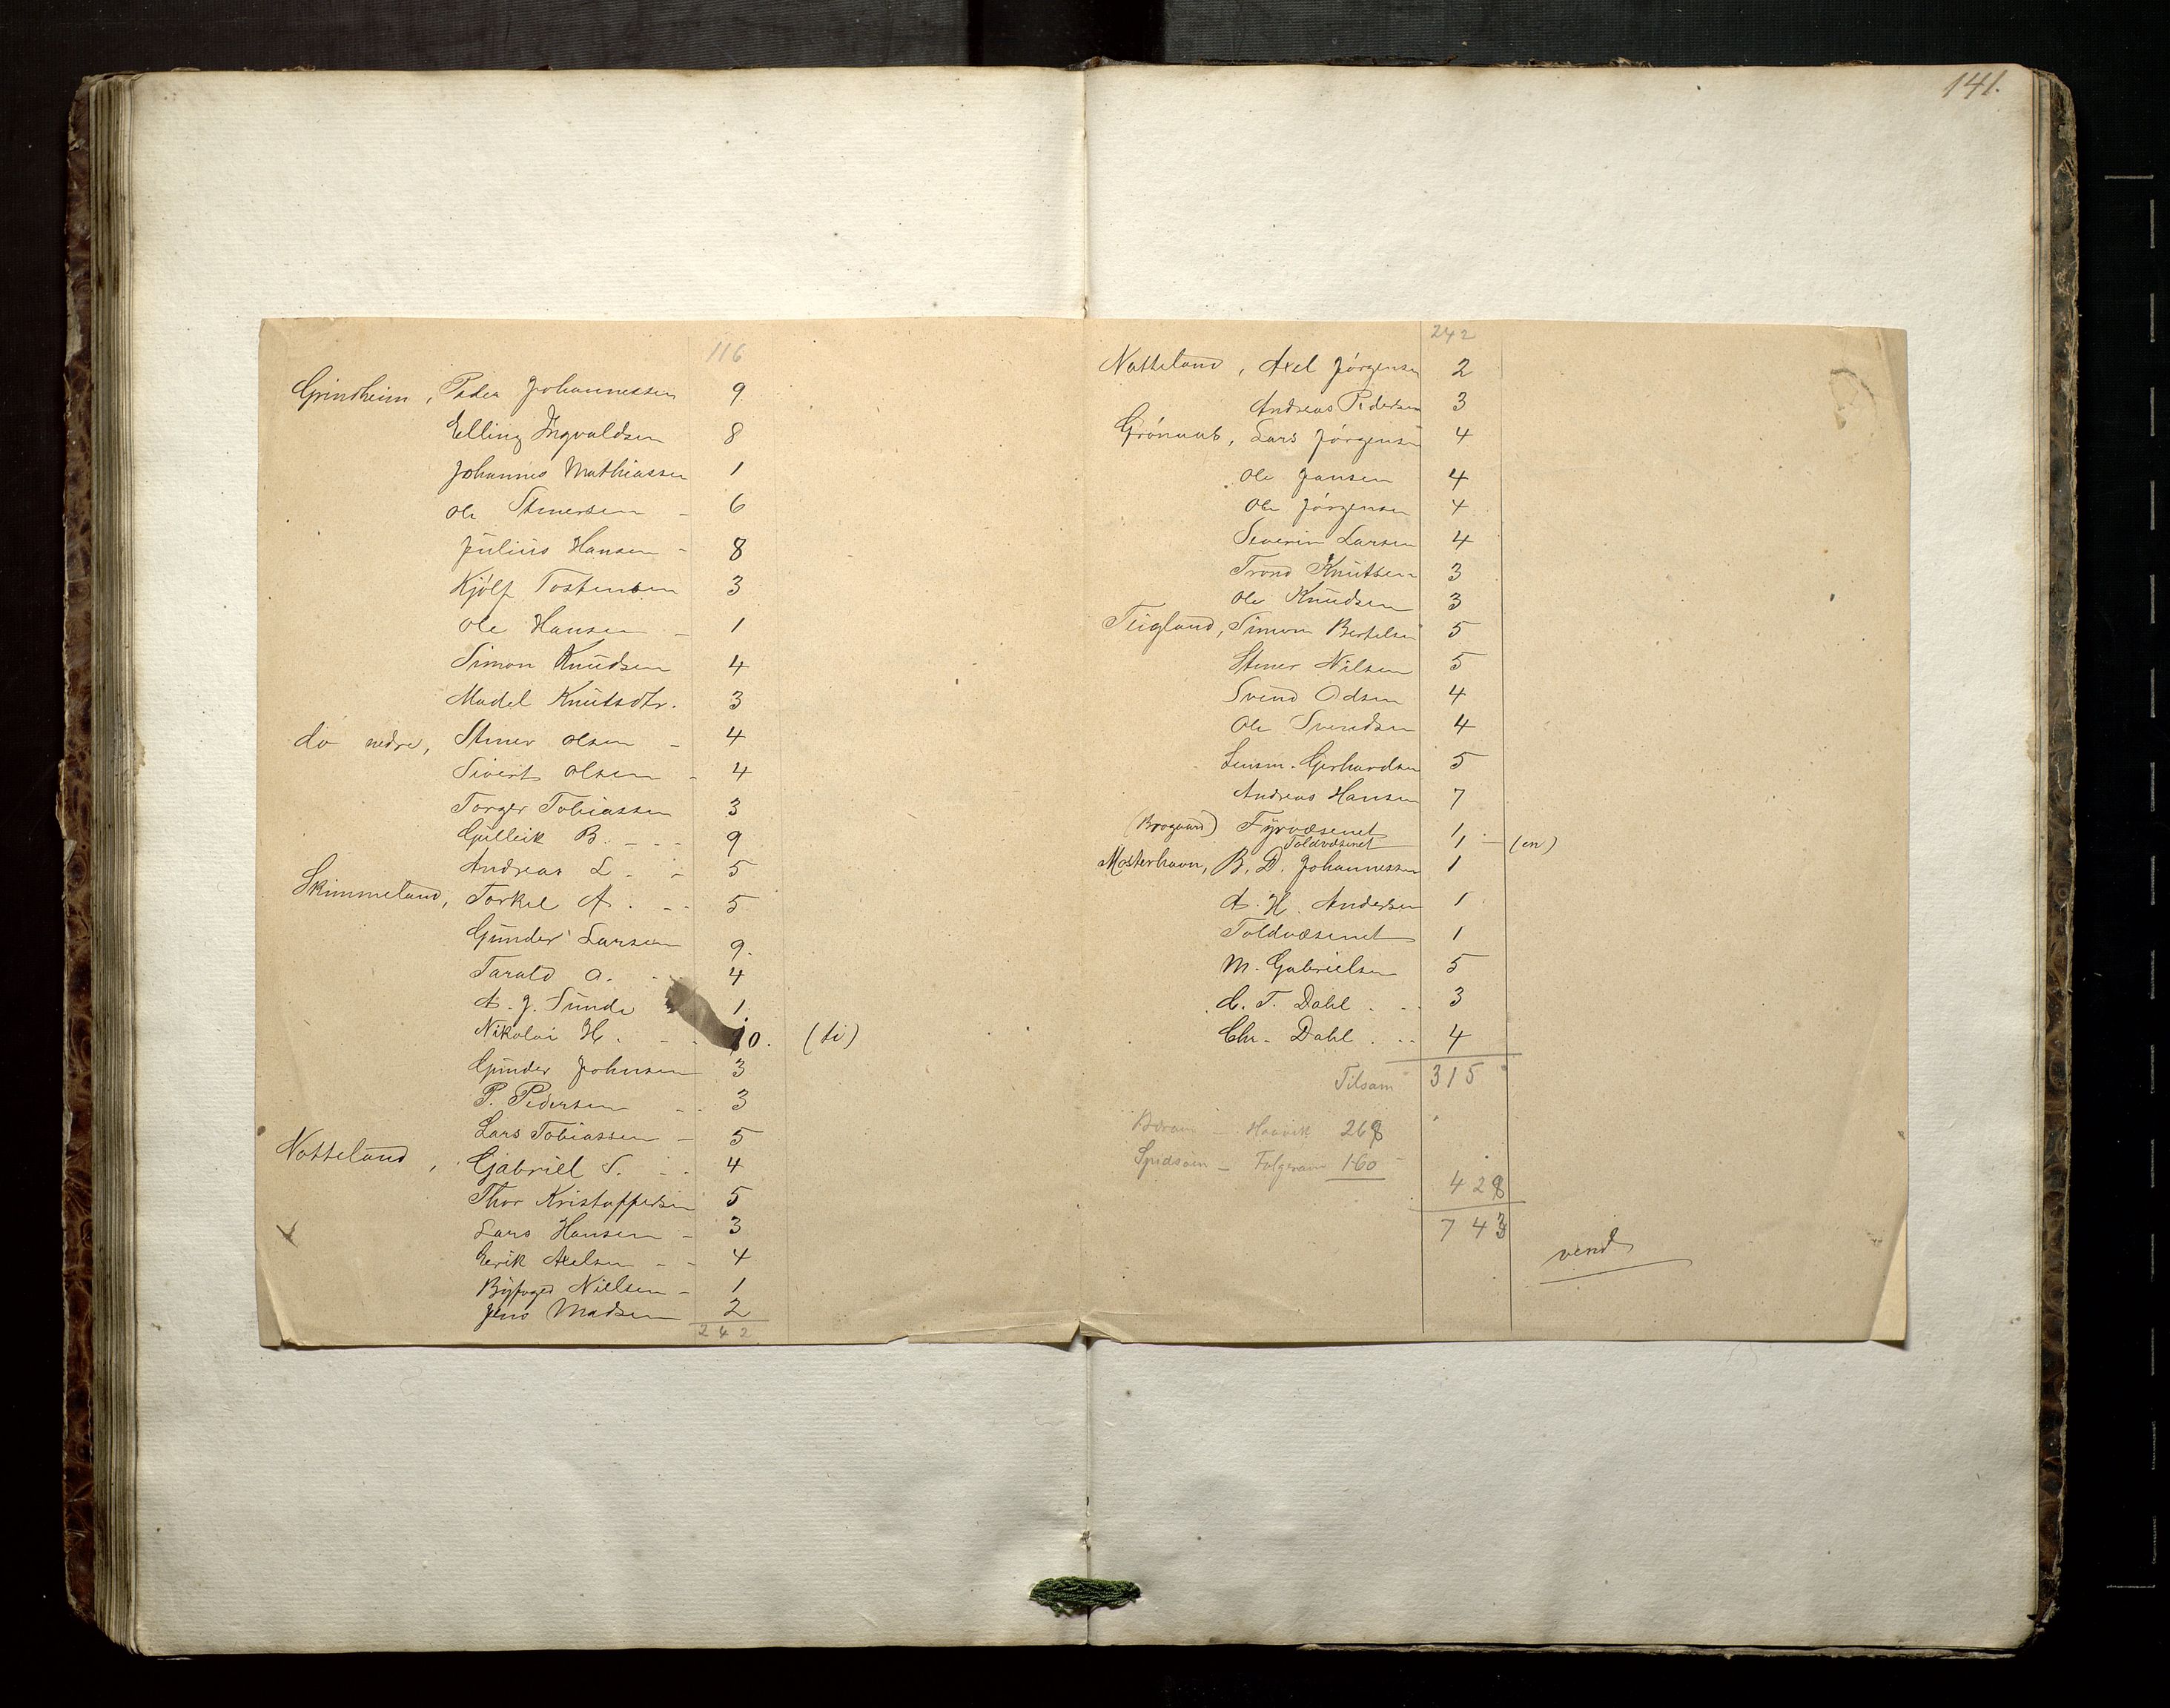 141.
116
Grindheim, Peder Johannessen 9
Elling Ingvaldsen 8
Johannes Mathiassen 1
Ole Stenersen - 6
Julius Hansen - 8
Kjølf Tostensen 3
Ole Hansen - 1
Simon Knudsen 4
Madel Knutsdtr. 3
do nedre, Stener Olsen - 4
Sivert Olsen - 4
Torger Tobiassen 3
Gulleik B. - - - 9
Andreas L. - - 5
Skimmeland, Torkel A. - - 5
Gunder Larsen 9.
Tarald O. - 4
A. J. Sunde 1.
Nikolai H. - - 10. (ti)
Gunder Johnsen 3
P. Pedersen - - 3
Lars Tobiassen - 5
Notteland, Gabriel S. - - 4
Thor Kristoffersen 5
Lars Hansen - 3
Eerik Axelsen - - 4
Byfoged Nielsen - 1
Jens Madsen 2
242
242
Notteland, Axel Jørgensen 2
Andreas Pedersen 3
Lars Jørgensen 4
Ole Jansen 4
Ole Jørgensen 4
Severin Larsen 4
Trond Knutsen 3
Ole Knudsen 3
Teigland, Simon Bertelsen 5
Stener Nilsen 5
Svend Odsen 4
Ole Svendsen 4
Lensm. Gerhardsen 5
Andreas Hansen 7
(Brogaard) Fyrvæsenet 1
Toldvæsenet 1 - (en)
Mosterhavn, B. D. Johannessen 1
A. H. Andersen 1
Toldvæsenet 1
M. Gabrielsen 5
C. T. Dahl . - - 3
Chr. Dahl . - - 4
Tilsam 315
Haavik 268
- 160
428
743
vend